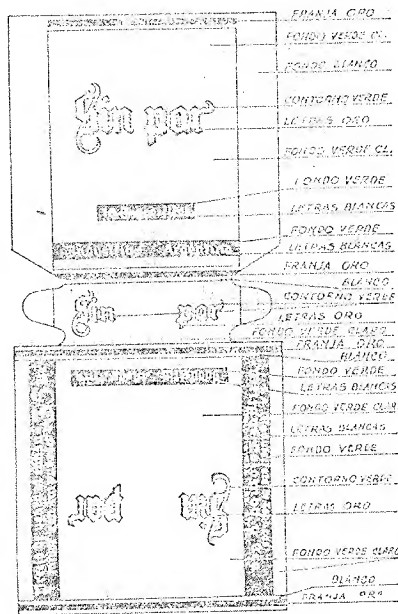 FRANJA ORO
FONDO VERDE CL.
FONDO BLANCO
CONTORNO VERDE
LETRAS ORO
FONDO VERDE CL.
FONDO VERDE
LETRAS BLANCAS
FONDO VERDE
LETRAS BLANCAS
FRANJA ORO
BLANCO
CONTORNO VERDE
LETRAS ORO
FONDO VERDE CLARO
FRANJA ORO
BLANCO
FONDO VERDE
LETRAS BLANCAS
FONDO VERDE CLAR
LETRAS BLANCAS
FONDO VERDE
CONTORNO VERDE
LETRAS ORO
FONDO VERDE CLARO
BLANCO
FRANJA ORO
Sin par
Sin par
Sin par